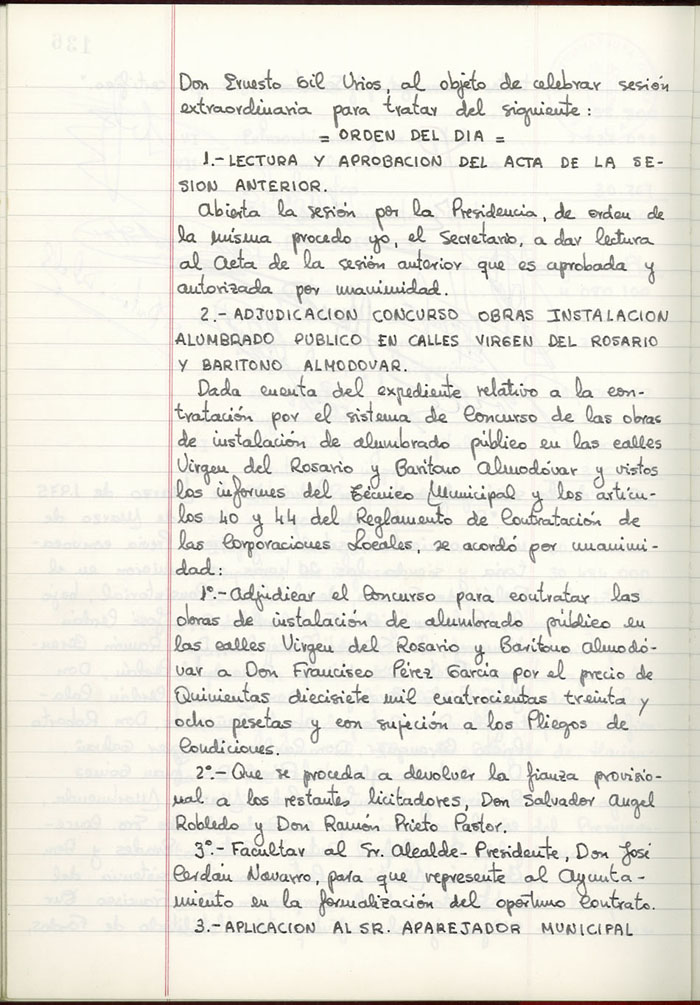 Don Ernesto Gil Urios, al objeto de celebrar sesión
extraordinaria para tratar del siguiente:
= ORDEN DEL DIA =
1.- LECTURA Y APROBACION DEL ACTA DE LA SE-
SION ANTERIOR.
Abierta la sesión por la Presidencia, de orden de
la misma procedo yo, el Secretario, a dar lectura
al Acta de la sesión anterior que es aprobada y
autorizada por unanimidad.
2.- ADJUDICACION CONCURSO OBRAS INSTALACION
ALUMBRADO PUBLICO EN CALLES VIRGEN DEL ROSARIO
Y BARITONO ALMODOVAR.
Dada cuenta del expediente relativo a la con-
tratación por el sistema de Concurso de las obras
de instalación de alumbrado público en las calles
Virgen del Rosario y Baritono Almodóvar y vistos
los informes del Técnico Municipal y los artícu-
los 40 y 44 del Reglamento de Contratación de
las Corporaciones Locales, se acordó por unanimi-
dad:
1º.- Adjudicar el Concurso para contratar las
obras de instalación de alumbrado público en
las calles Virgen del Rosario y Baritono Almodó-
var a Don Francisco Pérez García por el precio de
Quinientas diecisiete mil cuatrocientas treinta y
ocho pesetas y con sujeción a los Pliegos de
Condiciones.
2º.- Que se proceda a devolver la fianza provisio-
nal a los restantes licitadores, Don Salvador Angel
Robledo y Don Ramón Prieto Pastor.
3º.- Facultar al Sr. Alcalde-Presidente, Don José
Cerdán Navarro, para que represente al Ayunta-
miento en la formalización del oportuno Contrato.
3.- APLICACION AL SR. APAREJADOR MUNICIPAL